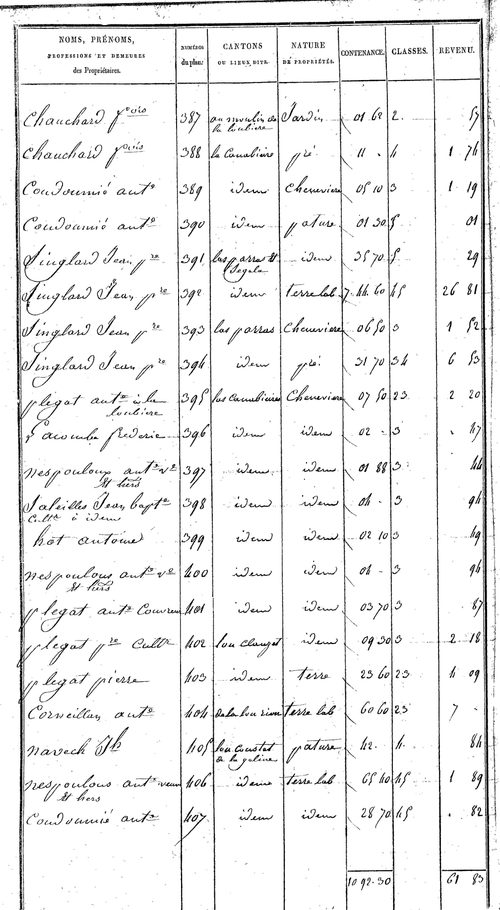 NOMS, PRÉNOMS,
PROFESSIONS ET DEMEURES
des Propriétaires.
NUMÉROS
du plan.
CANTONS
OU LIEUX DITS.
NATURE
DE PROPRIÉTÉS.
CONTENANCE.
CLASSES.
REVENU.
Chauchard fcois 387 au moulin de Jardin 01 62 2 . 57
la loubiere
Chauchard fcois 388 la Canabiere pré 11 - 4 1 76
Coudoumié ante 389 idem Cheneviere 05 10 3 1 19
Coudoumié ante 390 idem pature 01 30 5 01
Singlard Jean pre 391 las parras et idem 35 70 5 29
Segala
Singlard Jean pre 392 idem terre lab 7. 44 60 45 26 81
Singlard Jean pre 393 las parras Cheneviere 06 50 3 1 52
Singlard Jean pre 394 idem pré 31 70 34 6 53
plegat ante à la 395 las Canabieres Cheneviere 07 50 23 2 20
loubiere
Lacombe frederic 396 idem idem 02 - 3 . 47
nespoulous ante ve 397 idem idem 01 88 3 44
et hers
Saleilles Jean bapte 398 idem idem 04 - 3 94
Culte à idem
hot antoine 399 idem idem 02 10 3 49
nespoulous ante ve 400 idem idem 04 - 3 94
et hers
plegat ante Couvreur 401 idem idem 03 70 3 87
plegat pre Culte 402 lou Clauzet idem 09 30 3 2 18
plegat pierre 403 idem terre 23 60 23 4 09
Corneillan ante 404 terre lab 60 60 23 7 -
naveck Jh 405 lou Coustat pature 42 - 4 84
de la galine
nespoulous ante veuve 406 idem terre lab 65 40 45 1 89
et hers
Coudoumié ante 407 idem idem 28 70 45 . 82
10 92 - 30 61 83